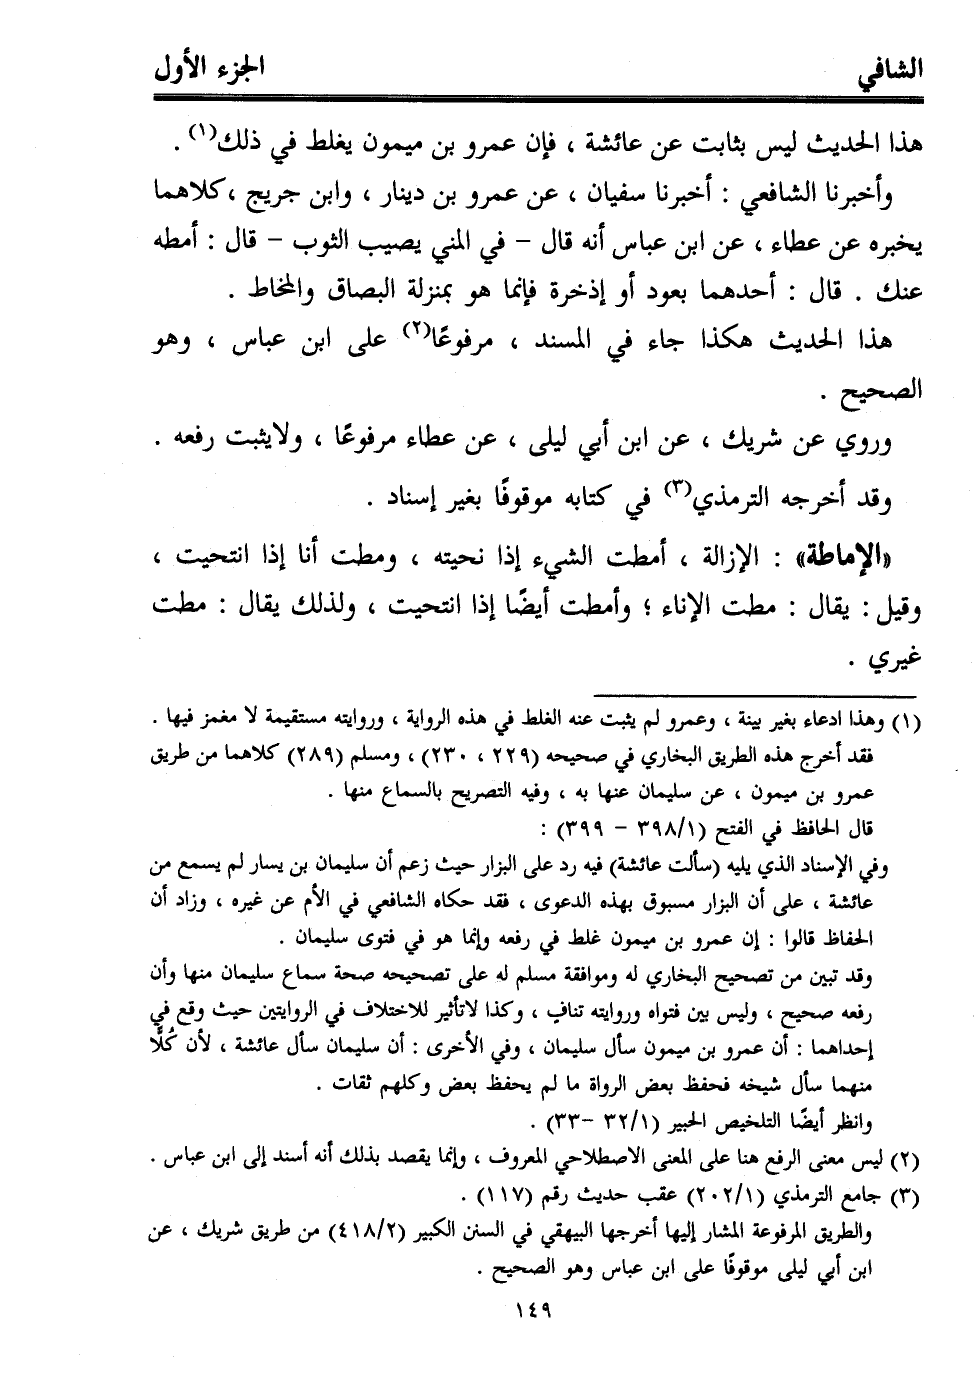 الشافي
الجزء الأول
هذا الحديث ليس بثابت عن عائشة ، فإن عمرو بن ميمون يغلط في ذلك(١) .
وأخبرنا الشافعي : أخبرنا سفيان ، عن عمرو بن دينار ، وابن جريج ،كلاهما
يخبره عن عطاء ، عن ابن عباس أنه قال – في المني يصيب الثوب – قال : أمطه
عنك . قال : أحدهما بعود أو إذخرة فإنما هو بمنزلة البصاق والمخاط .
هذا الحديث هكذا جاء في المسند ، مرفوعًا(٢) على ابن عباس ، وهو
الصحيح .
وروي عن شريك ، عن ابن أبي ليلى ، عن عطاء مرفوعًا ، ولايثبت رفعه .
وقد أخرجه الترمذي(٣) في كتابه موقوفًا بغير إسناد .
«الإماطة» : الإزالة ، أمطت الشيء إذا نحيته ، ومطت أنا إذا انتحيت ،
وقيل : يقال : مطت الإناء ؛ وأمطت أيضًا إذا انتحيت ، ولذلك يقال : مطت
غيري .
(١) وهذا ادعاء بغير بينة ، وعمرو لم يثبت عنه الغلط في هذه الرواية ، وروايته مستقيمة لا مغمز فيها .
فقد أخرج هذه الطريق البخاري في صحيحه (٢٢٩ ، ٢٣٠) ، ومسلم (٢٨٩) كلاهما من طريق
عمرو بن ميمون ، عن سليمان عنها به ، وفيه التصريح بالسماع منها .
قال الحافظ في الفتح (٣٩٨/١ – ٣٩٩) :
وفي الإسناد الذي يليه (سألت عائشة) فيه رد على البزار حيث زعم أن سليمان بن يسار لم يسمع من
عائشة ، على أن البزار مسبوق بهذه الدعوى ، فقد حكاه الشافعي في الأم عن غيره ، وزاد أن
الحفاظ قالوا : إن عمرو بن ميمون غلط في رفعه وإنما هو في فتوى سليمان .
وقد تبين من تصحيح البخاري له وموافقة مسلم له على تصحيحه صحة سماع سليمان منها وأن
رفعه صحيح ، وليس بين فتواه وروايته تناف ، وكذا لاتأثير للاختلاف في الروايتين حيث وقع في
إحداهما : أن عمرو بن ميمون سأل سليمان ، وفي الأخرى : أن سليمان سأل عائشة ، لأن كُلًّا
منهما سأل شيخه فحفظ بعض الرواة ما لم يحفظ بعض وكلهم ثقات .
وانظر أيضًا التلخيص الحبير (٣٢/١ –٣٣) .
(٢) ليس معنى الرفع هنا على المعنى الاصطلاحي المعروف ، وإنما يقصد بذلك أنه أسند إلى ابن عباس .
(٣) جامع الترمذي (٢٠٢/١) عقب حديث رقم (١١٧) .
والطريق المرفوعة المشار إليها أخرجها البيهقي في السنن الكبير (٤١٨/٢) من طريق شريك ، عن
ابن أبي ليلى موقوفًا على ابن عباس وهو الصحيح .
١٤٩